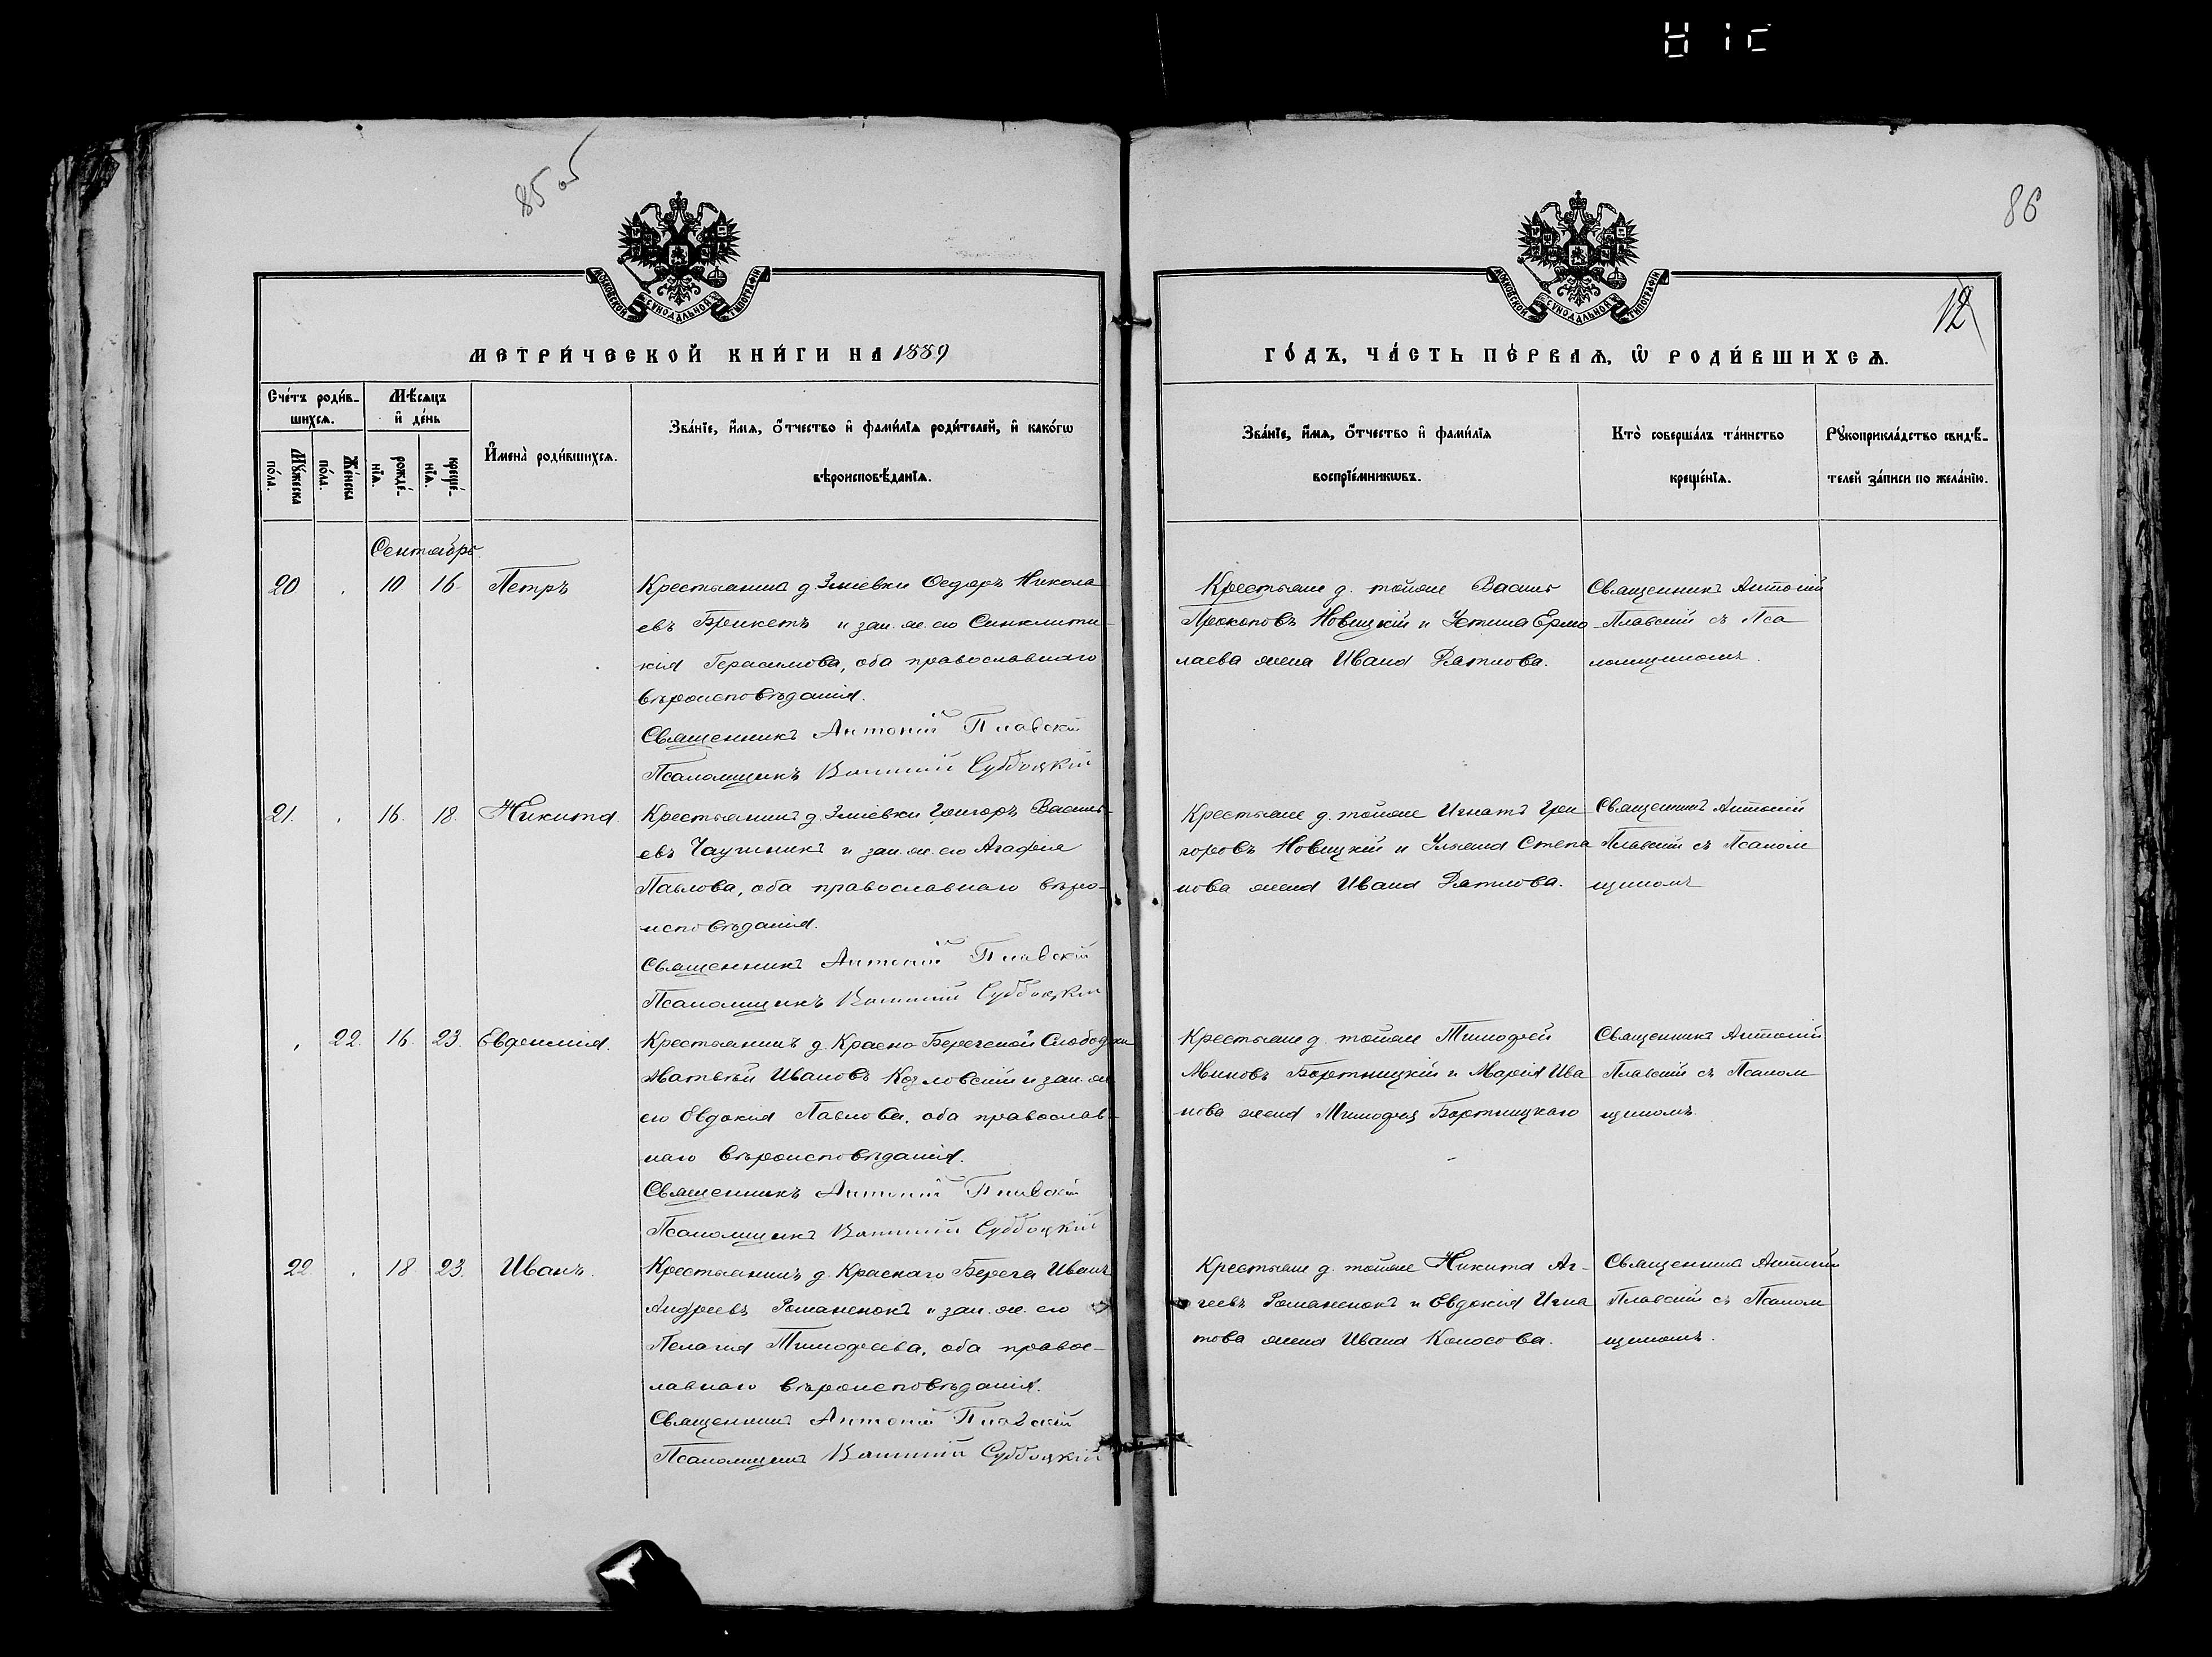 85 об
86
12
МОСКОВСКОЙ СѴНОДАЛЬНОЙ ТИПОГРАФІИ
МОСКОВСКОЙ СѴНОДАЛЬНОЙ ТИПОГРАФІИ
МЕТРИ́ЧЕСКОЙ КНИ́ГИ НА 1889
ГО́ДЪ, ЧА́СТЬ ПЕ́РВАѦ, Ѡ҆ РОДИ́ВШИХСѦ.
Сче́тъ роди́в-
шихсѧ.
Мꙋ́жеска
по́ла.
Же́нска
по́ла.
Мѣ́сѧцъ
и҆ де́нь
рожде́-
нїѧ.
креще́-
нїѧ.
И҆мена̀ роди́вшихсѧ.
Зва́нїе, и҆́мѧ, ѻ҆́тчество и҆ фами́лїѧ роди́телей, и҆ како́гѡ
вѣроисповѣ́данїѧ.
Зва́нїе, и҆́мѧ, ѻ҆́тчество и҆ фами́лїѧ
воспрїе́мникѡвъ.
Кто̀ соверша́лъ та́инство
креще́нїѧ.
Рꙋкоприкла́дство свидѣ́-
телей за́писи по жела́нїю.
Сентябрь.
20 10 16 Петръ
Крестьянинъ д. Змѣевки Ѳедоръ Никола-
евъ Брикетъ и зак. ж. его Синклити-
кія Герасимова, оба православнаго
вѣроисповѣданія.
Священникъ Антоній Плавскій
Псаломщикъ Суббоцкій
Крестьяне д. тойже Василь
Прокоповъ Новицкій и Устина Ермо
лаева жена Ивана
Священникъ Антоній
Плавскій съ Пса
ломщикомъ.
21. 16. 18. Никита.
Крестьянинъ д. Змѣевки Григоръ Василь-
евъ Чаушникъ и зак. ж. его Агафія
Павлова, оба православнаго вѣро-
исповѣданія.
Священникъ Антоній Плавскій
Псаломщикъ Суббоцкій
Крестьяне д. тойже Игнатъ Гри
горовъ Новицкій и Ульяна Степа
нова жена Ивана
Священникъ Антоній
Плавскій съ Псалом
щикомъ
22. 16. 23. Евфимія.
Крестьянинъ д. Красно-Берегской Слободки
Матвѣй Ивановъ Козловскій и зак. ж.
его Евдокія Павлова, оба православ-
наго вѣроисповѣданія.
Священникъ Антоній Плавскій
Псаломщикъ Суббоцкій
Крестьяне д. тойже Тимофей
Миновъ Бортницкій и Марія Ива
нова жена Тимофея Бортницкаго
Священникъ Антоній
Плавскій съ Псалом
щикомъ.
22. 18 23. Иванъ.
Крестьянинъ д. Краснаго Берега Иванъ
Андреевъ Романенокъ и зак. ж. его
Пелагія Тимофеева, оба правос-
лавнаго вѣроисповѣданія.
Священникъ Антоній Плавскій
Псаломщикъ Суббоцкій
Крестьяне д. тойже Никита Аг-
геевъ Романенокъ и Евдокія Игна
това жена Ивана Колосова.
Священникъ Антоній
Плавскій съ Псалом
щикомъ.